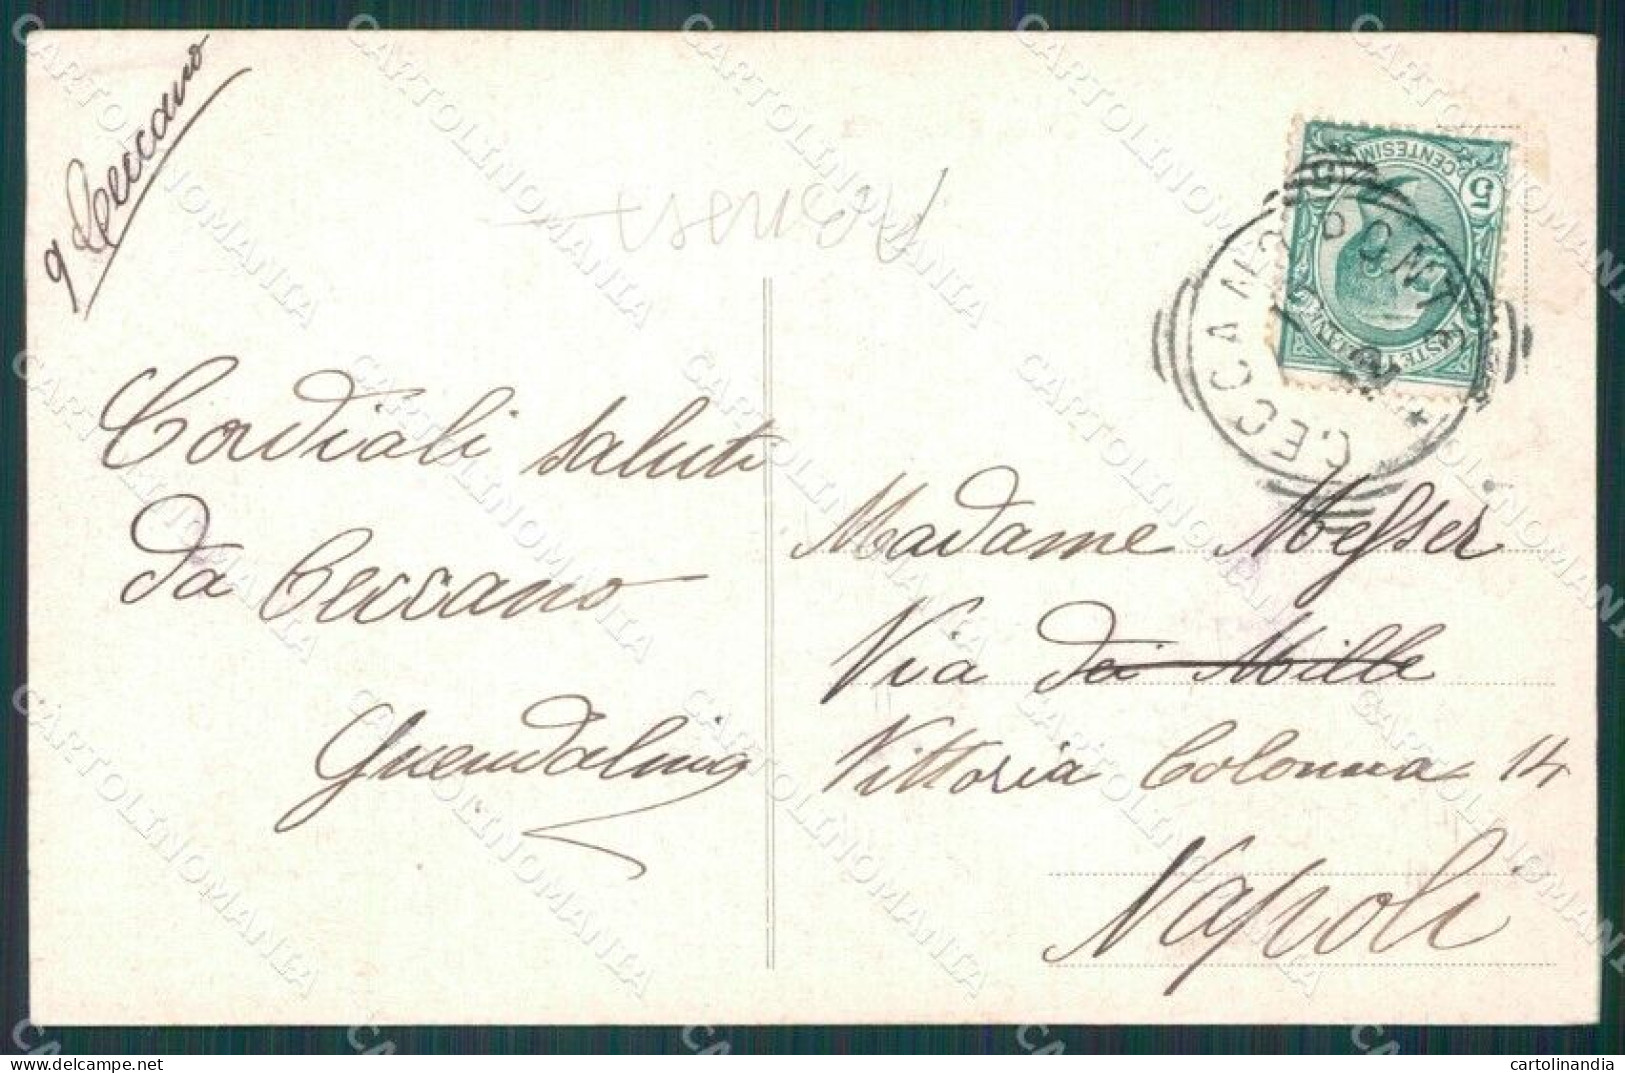 9 Ceccano
Cordiali saluti
da Ceccano
Guendalina
CENTESIMI
5
POSTE ITALIANE
CECCANO
Madame Messer
Via dei Mille
Vittoria Colonna 14
Napoli
CARTOLINOMANIA
cartolinandia